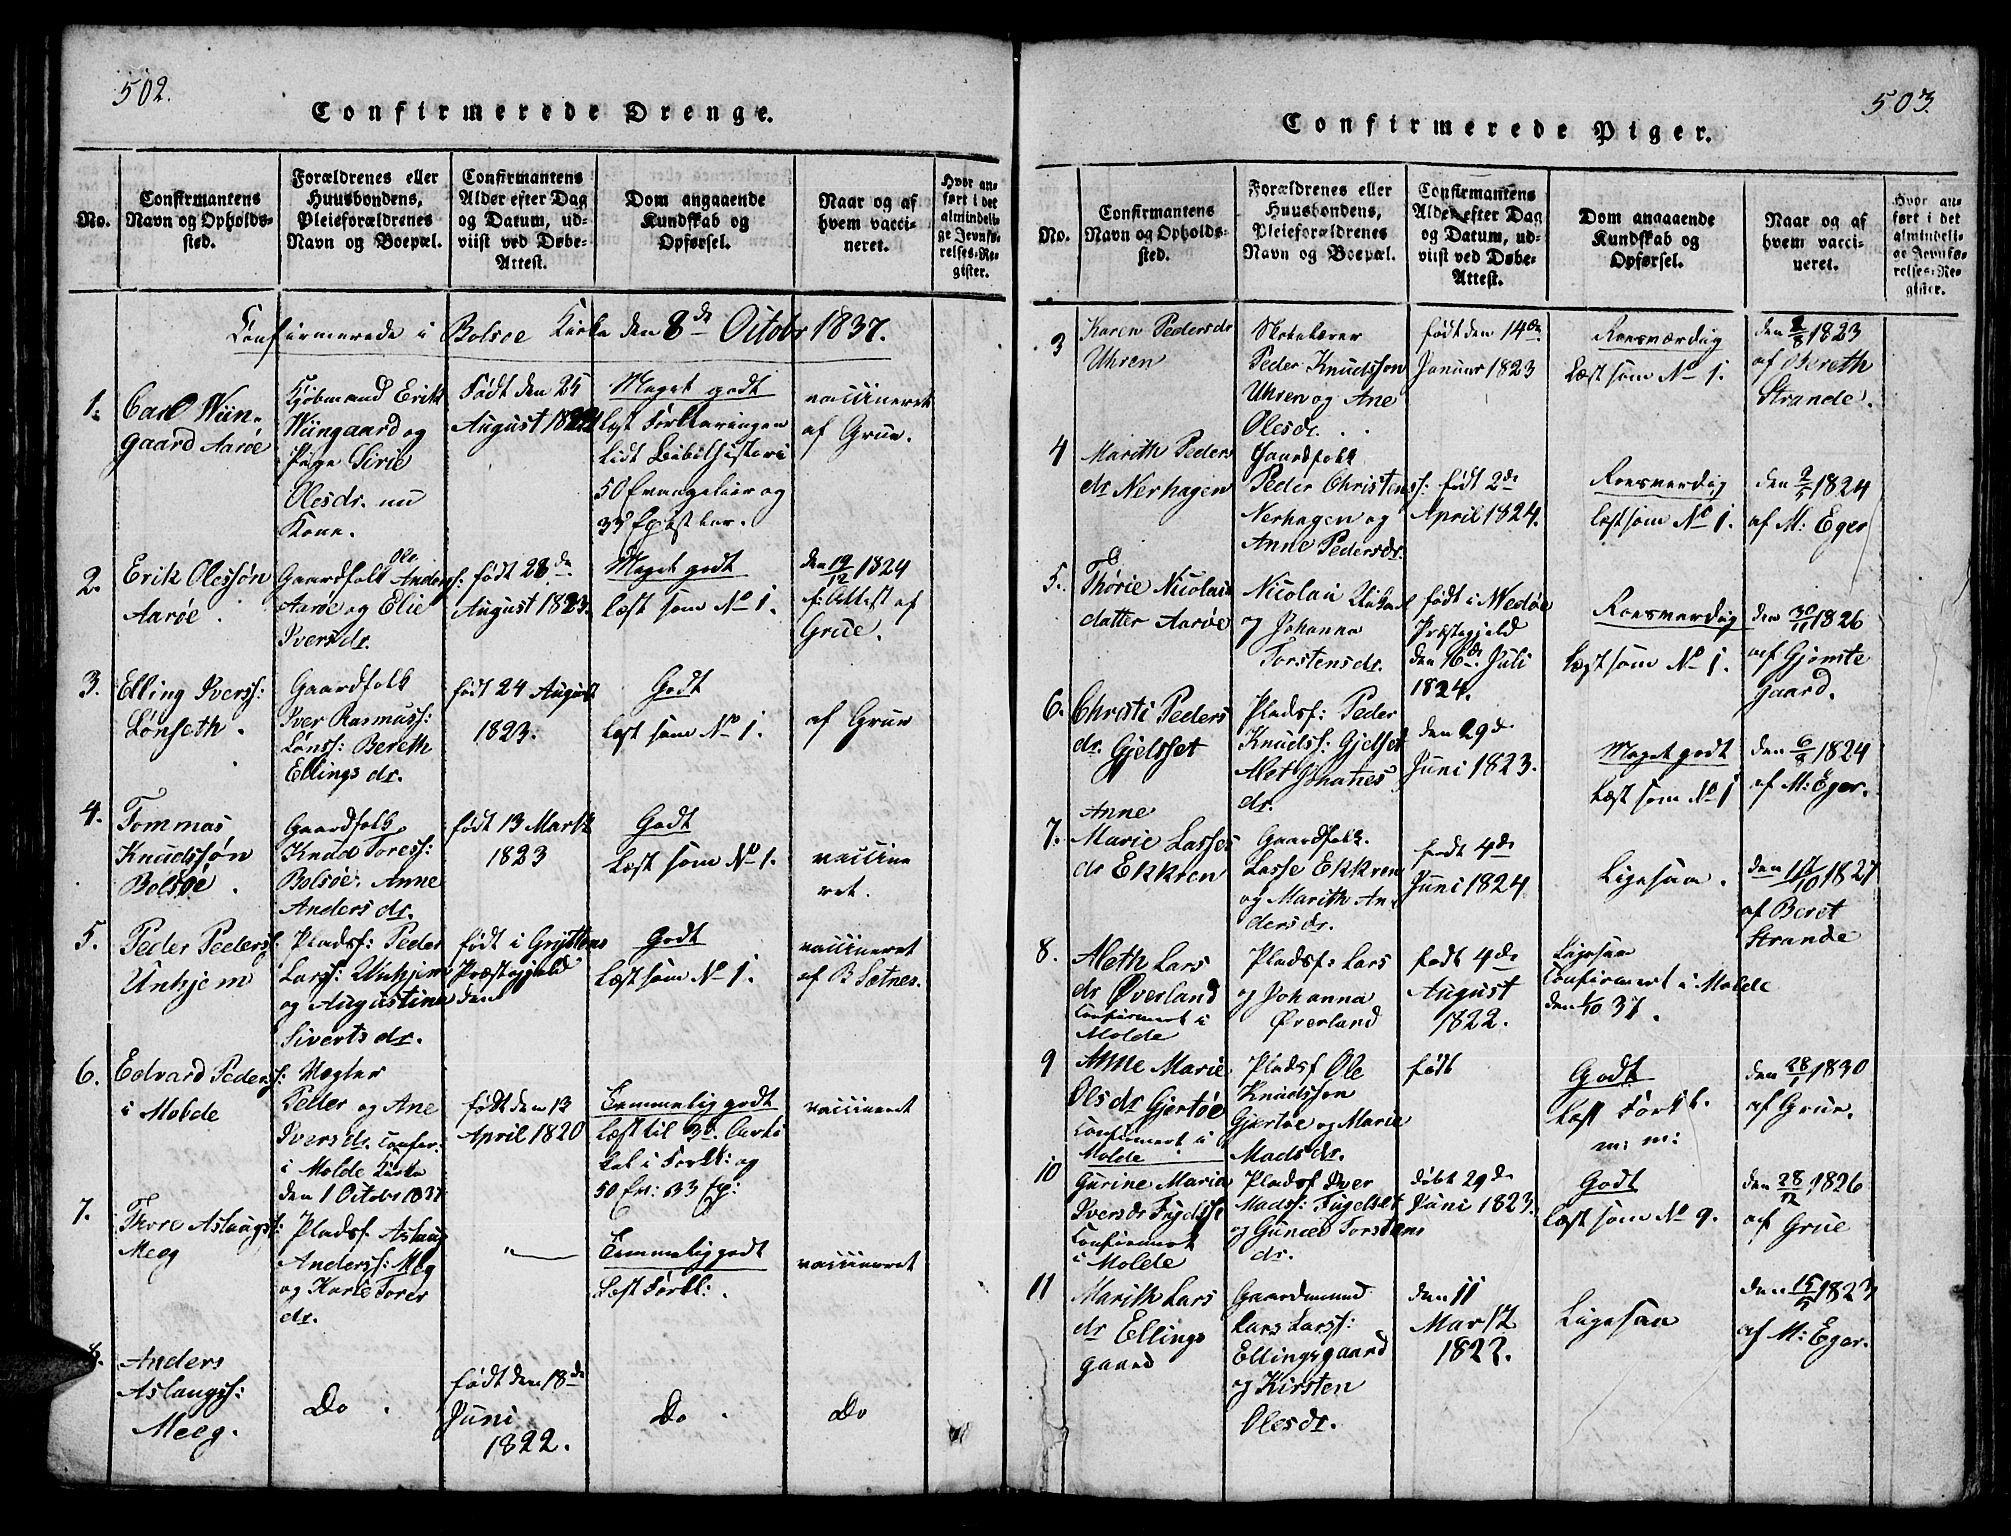 502.
Confirmerede Drenge.
No.
Confirmantens
Navn og Opholds-
sted.
Forældrenes eller
Huusbondens,
Pleieforældrenes
Navn og Boepæl.
Confirmantens
Alder efter Dag
og Datum, ud-
viist ved Døbe-
Attest.
Dom angaaende
Kundskab og
Opførsel.
Naar og af
hvem vacci-
neret.
Hvor an-
ført i det
almindeli-
ge Jevnfø-
relses-Re-
gister.
Confirmerede i Bolsøe Kirke den 8de Octobr 1837.
1.
Carl Wiin-
gaard Aarøe
Kjøbmand Erik
Wiingaard og
Pige Sirie
Olesdr. nu
Kone.
Født den 25
August
Meget godt
Læst Forklaringen
lidt Bibelhistorie
50 Evangelier og
33 Epistler.
vaccineret
af Grue.
2.
Erik Olessøn
Aarøe.
Gaardfolk Ole Anders:
Aarøe og Elie
Iversdr.
født 28de
August 1823.
Meget godt
læst som No 1.
den 19/12 1824
f: Attest af
Grue.
3.
Elling Iverss:
Lønseth.
Gaardfolk
Iver Rasmuss:
Lønss: Bereth
Ellingsdr.
født 24 August
1823.
Godt
Læst som No 1.
af Grue
4.
Tommas
Knudssøn
Bolsøe.
Gaardfolk
Knud Toress:
Bolsøe. Anne
Andersdr.
født 13 Martz
1823
Godt
Læst som No 1.
vaccine
ret.
5.
Peder Peders:
Unhjem
Pladsf: Peder
Larss: Unhjem
og Augustine
Sivertsdr.
født i Gryttens
Præstegjeld
den
Godt
Læst som No 1.
vaccineret
af B Sætnes.
6.
Edvard Peders:
i Molde
Vægter
Peder og Ane
Iversdr. Confir:
i Molde Kirke
den 1 Octobr 1837
født den 13
April 1820
Temmelig godt
Læst til 3d. Arti
kel i Forkl: og
50 Ev: 33 Ep:
vaccineret
7.
Thore Aslaugs:
Meeg
Pladsf. Aslaug
Anderss: Meg
og Karie Torer
dr.
"
Temmelig godt
Læst Forkl:.
vaccineret
8.
Anders
Aslaugss:
Meeg.
Do.
født den 18de
Juni
1822.
Do.
Do
503.
Confirmerede Piger.
No.
Confirmantens
Navn og Opholds-
sted.
Forældrenes eller
Huusbondens,
Pleieforældrenes
Navn og Boepæl.
Confirmantens
Alder efter Dag
og Datum, ud-
viist ved Døbe-
Attest.
Dom angaaende
Kundskab og
Opførsel.
Naar og af
hvem vacci-
neret.
Hvor an-
ført i det
almindeli-
ge Jevnfø-
relses-Re-
gister.
3
Karen Pedersdr
Uhren
Skolelærer
Peder Knudsson
Uhren og Ane
Olesdr.
født den 14de
Januar 1823
Roesværdig
Læst som No 1.
1823
af Bereth
Strande.
4
Marith Peders
dr Nerhagen
Gaardfolk
Peder Christens:
Nerhagen og
Anne Pedersdr.
født 2de
April 1824.
Roesverdig
læst som No 1.
den 2/5 1824
af M: Eger
5.
Thørie Nicolai
datter Aarøe
Nicolai
og Johanna
Torstensdr.
født i Wedøe
Præstegjeld
den 16de Juli
1824.
Roesverdig
Læst som No 1.
den 30/11 1826
af Gjømte
gaard.
6.
Christi Peders
dr. Gjelsset
Pladsf: Peder
Knudss: Gjelset
Alet Johannes
dr.
den 29de
Juni 1823.
Meget godt
Læst som No 1
den 6/8 1824
af M: Eger.
7.
Anne
Marie Lasses
dr Ekkren
Gaardfolk.
Lasse Ekkren
og Marith An-
dersdr.
født 4de
Juni 1824
Ligesaa.
1827
af Beret
Strande
8.
Aleth Lars
dr Øverland
Confirmert i
Molde
Pladsf: Lars
og Johanna
Øverland
født 4de
August
1822.
Ligesaa
Confirmert i Molde
den 1/10 37.
9
Anne Marie
Olsdr Gjertøe
Confirmert i
Molde
Pladsf Ole
Knudsson
Gjertøe og Marie
Madsdr.
født
Godt
Læst Forkl.
m: m:
den 28/1 1830
af Grue.
10
Gurine Marie
Iversdr
Confirmert
i Molde
Pladsf. Iver
Madss: Fugelset
og Guneld Torstens
dr.
døbt 29de
Juni 1823.
Godt
Læst som No 9.
den 28/12 1826
af Grue
11
Marith Lars
dr Ellings
gaard
Gaardmand
Lars Larss:
Ellingsgaard
og Kirsten
Olesdr.
den 11
Martz
1822.
Ligesaa
den 15/5 1823
af M: Eger.